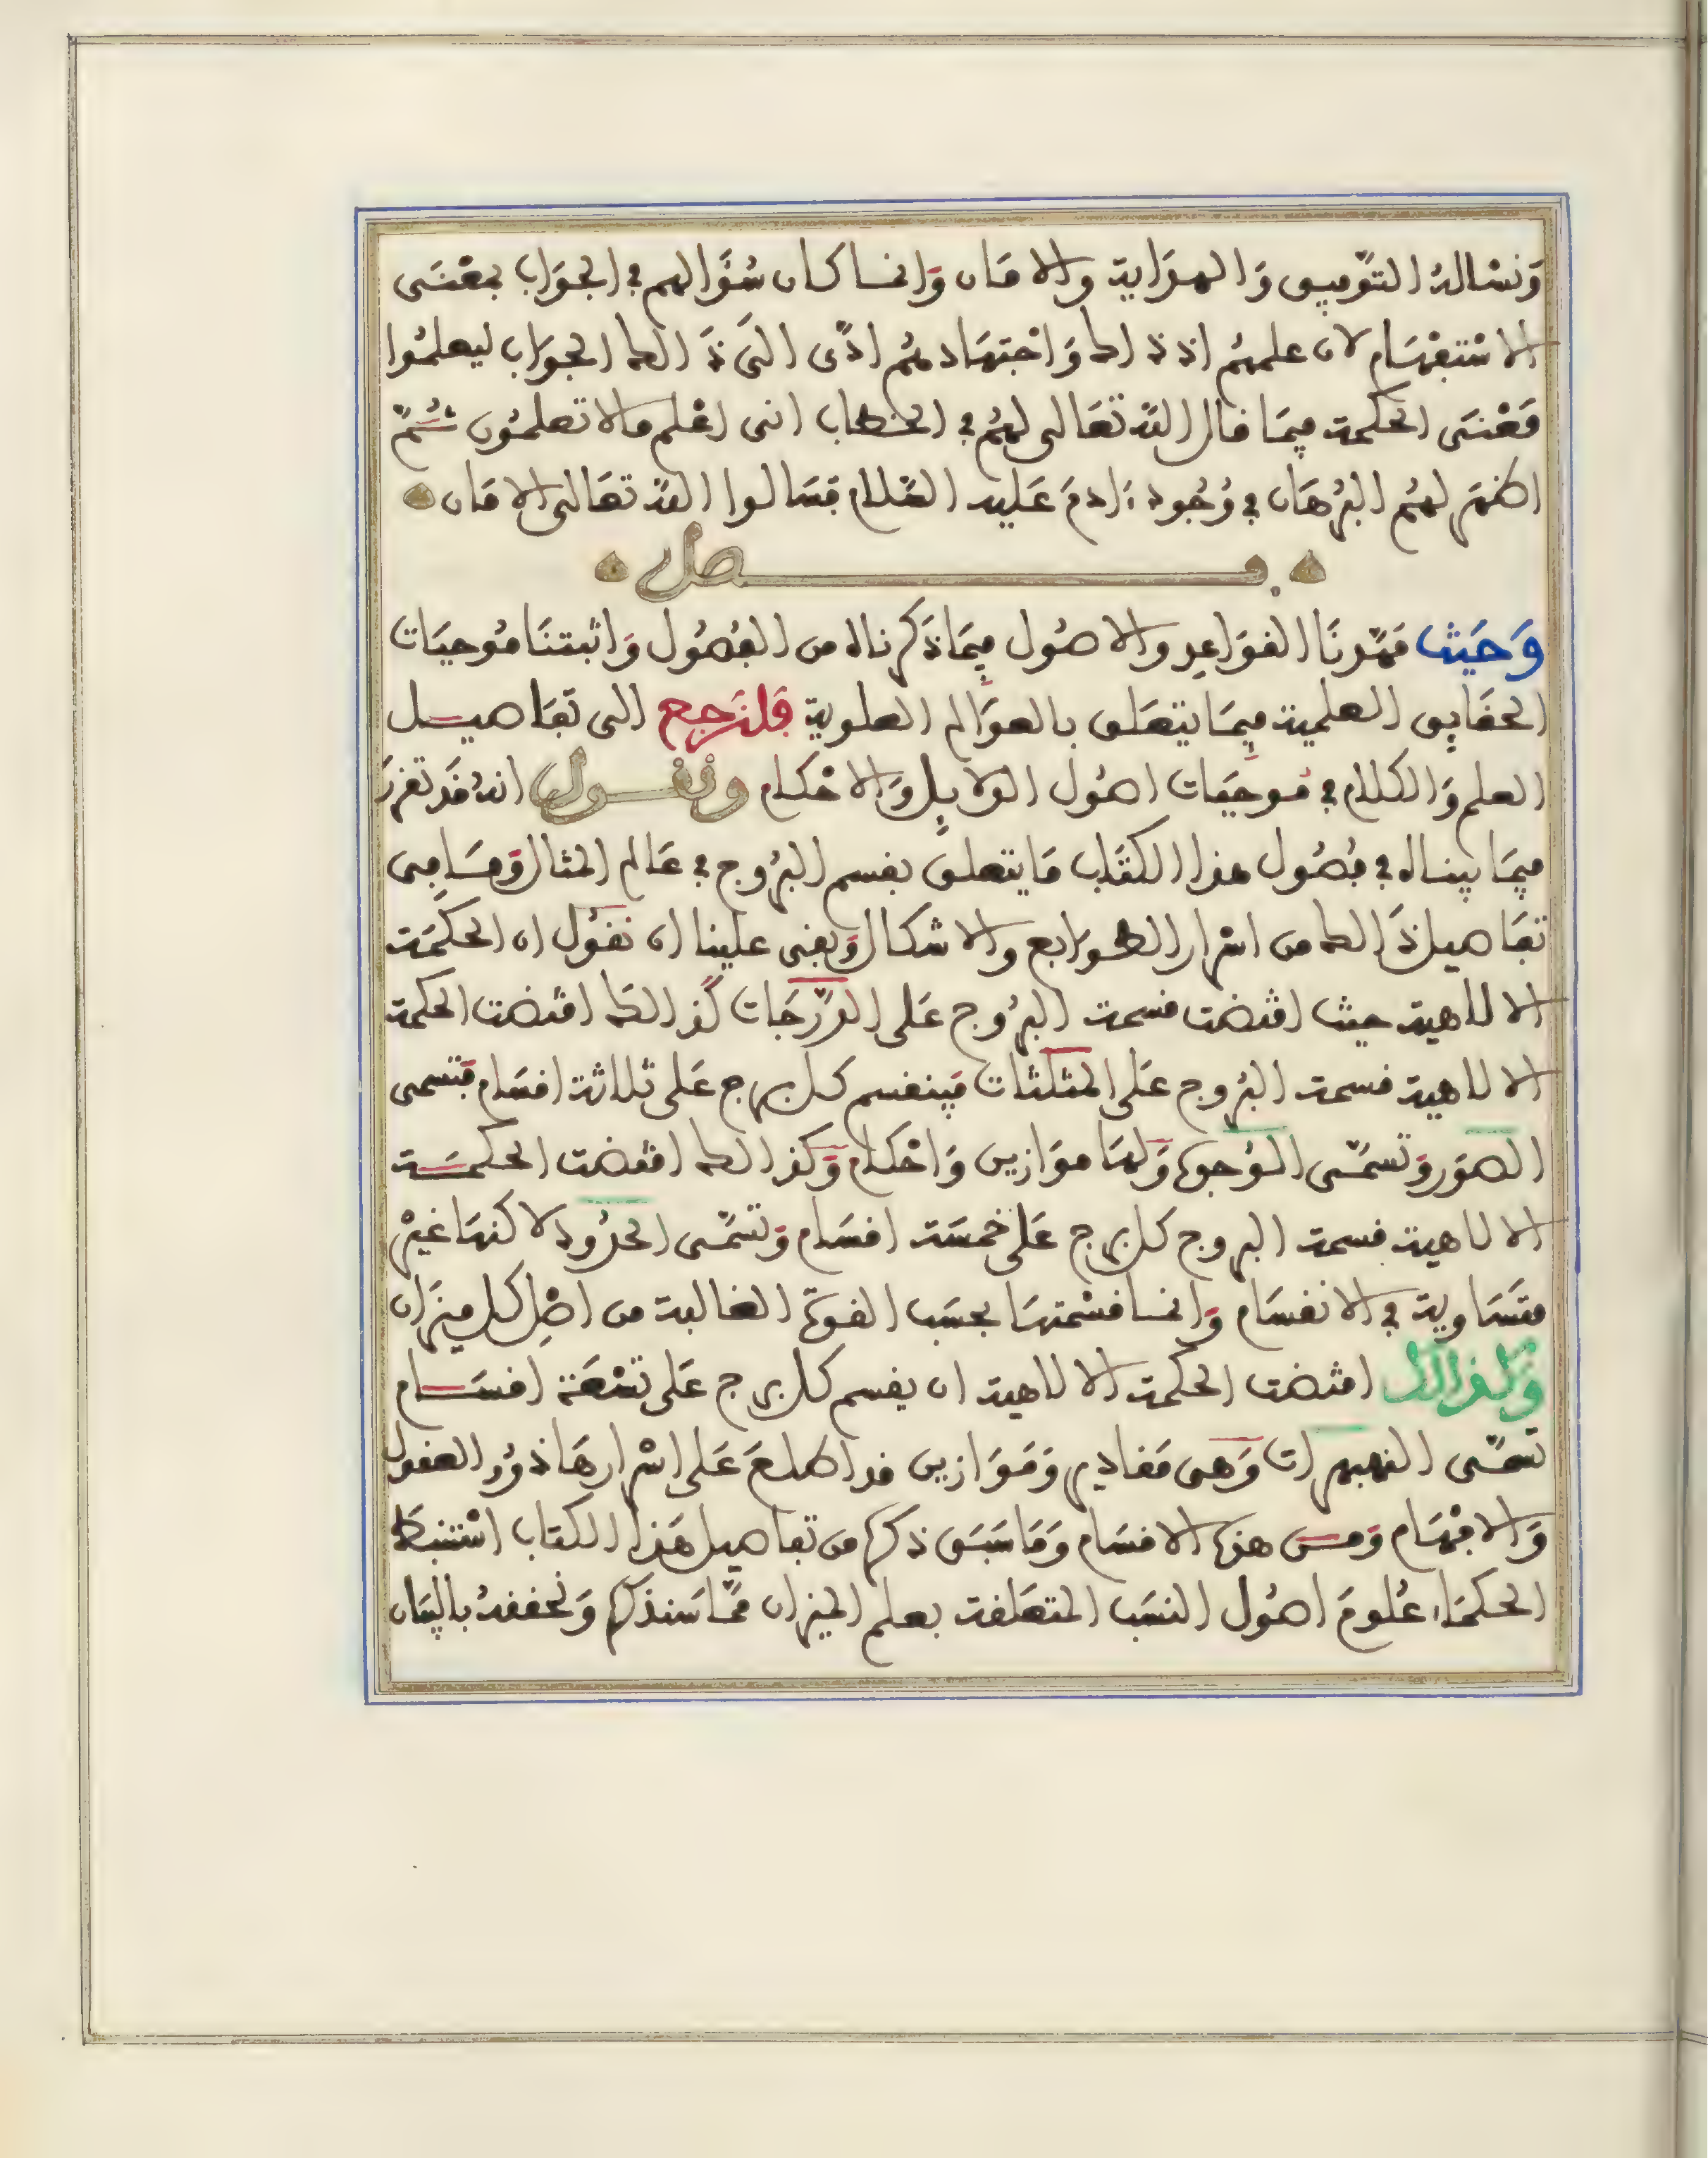 وَنسْالهُ التوّفيق وَالهدَاية والامَان وَانما كان سُؤَالهم في الجوَاب بمعْنَى
الاسْتفهَام لان علمهُم اذ ذاك وَاجتهَادهُم ادّى الىَ ذَالك الجوَاب ليعلمُوا
مَعْنَى الحكمة فيمَا قال اللهُ تعَالى لهُم في الخطاب انى اعْلم مالا تعلمُون ثُمّ
اظهَر لهُم البُرهَان في وُجُود ءادمَ عَليه السّلام فسَالوا اللهَ تعَالى الامَان
فصل
وَحَيثُ مَهّدنَا القوَاعد والاصُول فيمَا ذَكرناه من الفُصُول وَاثبتنَا مُوجبَات
الحقَايق العلمية فيمَا يتعَلق بالعوَالم العلوية فَلنَرجع الى تفَاصيل
العلم وَالكلام في مُوجبَات اصُول الدلايل وَالاحْكام ونقول انهُ قَد تقررَ
فيمَا بيناه في فصُول هذا الكتَاب مَا يتعلق بقسم البُروج في عَالم المثال وَمسَا في
تفَاصيل ذَالك من اسْرار الطوابع والاشكال وَبقى علينا ان نقُول ان الحكمَة
الالاهية حيث اقتضت قسمة البرُوج عَلى الدّرَجَات كذَالك اقتضت الحكمة
الالاهية قسمة البرُوج عَلى المثلثات فينقسم كل برج عَلى ثلاثة اقسَام فتسمى
الصوَر وَتسمّى الوُجوه وَلهَا موَازين وَاحْكام وَكذالك اقتضت الحكمَة
الالاهية قسمة البروج كل برج عَلى خمسَة اقسَام وَتسَمّى الحدُود لاكنهَا غيْر
متسَاوية في الانقسَام وَانما قسْمتهَا بحسَب القوة الغالبة من اصْل كل ميزَان
وَلذالك اقتضت الحكمة الالاهية ان يقسم كل برج عَلى تسْعَة اقسَام
تسمّى النهبهرات وَهى مَقادير وَمَوَازين قد اطلعَ عَلى اسْرارهَا ذوُو العقول
وَالافْهَام وَمن هذه الاقسَام وَمَا سَبَق ذكره من تفاصيل هَذا الكتاب اسْتنبط
الحكمَاء عُلومَ اصُول النسَب المتعَلقة بعلم الميزان ممّا سَنذكره وَنحققهُ بالبيَان